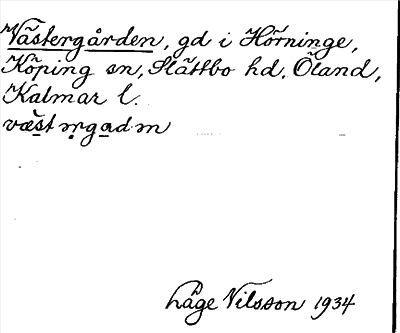 Västergården, gd i Hörninge,
Köping sn, Slättbo hd. Öland,
Kalmar l.
væst ərgad ən
Åge Nilsson 1934